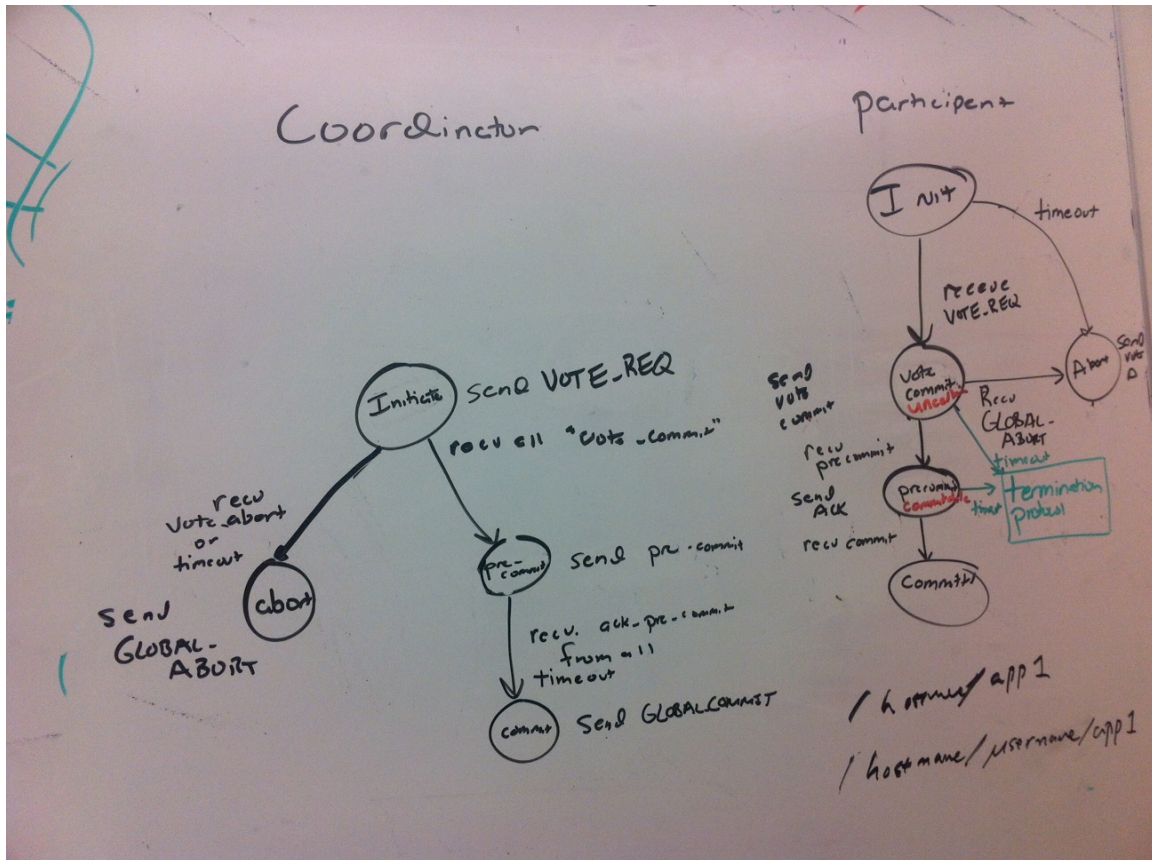 Coordinator
Initiate
send VOTE_REQ
recv all "vote_commit"
recv
vote_abort
or
timeout
abort
send
GLOBAL_
ABORT
pre-
commit
send pre-commit
recv. ack_pre_commit
from all
timeout
commit
send GLOBAL_COMMIT
participant
Init
timeout
receve
VOTE_REQ
vote
commit
send
vote
commit
Abort
send
vote
Recv
GLOBAL_
ABORT
timeout
recv
precommit
send
ACK
precommit
committable
timeout
termination
protocol
recv commit
/hostname/app1
/hostname/username/app1